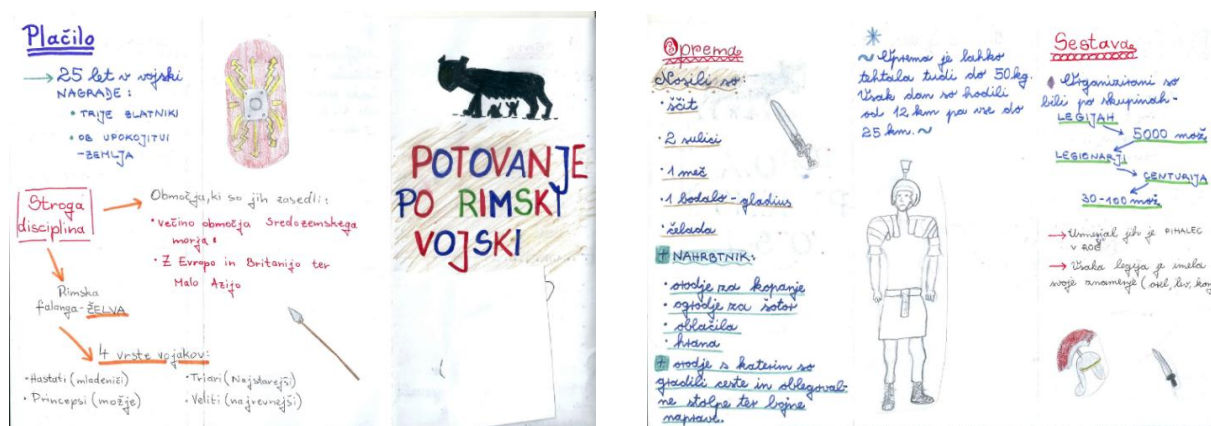 Plačilo
→ 25 let v vojski
NAGRADE:
• TRIJE ZLATNIKI
• OB UPOKOJITVI
- ZEMLJA
Stroga
disciplina
Območja, ki so jih zasedli:
• večino območja Sredozemskega
morja.
• Z Evropo in Britanijo ter
Malo Azijo
Rimska
falanga - ŽELVA
4 vrste vojakov:
• Hastati (mladeniči)
• Principsi (možje)
• Triari (Najstarejši)
• Veliti (najrevnejši)
POTOVANJE
PO RIMSKI
VOJSKI
Oprema
Nosili so:
• ščit
• 2 sulici
• 1 meč
• 1 bodalo - gladius
• čelada
+ NAHRBTNIK:
• orodje za kopanje
• ogrodje za šotor
• oblačila
• hrana
+ orodje s katerim so
gradili ceste in oblegoval-
ne stolpe ter bojne
naprave.
~ Oprema je lahko
tehtala tudi do 50 kg.
Vsak dan so hodili
od 12 km pa vse do
25 km. ~
Sestava
Organizirani so
bili po skupinah -
LEGIJAH
5000 mož
LEGIONARJI
CENTURIJA
30-100 mož
→ Usmerjal jih je PIHALEC
V ROG
→ Vsaka legija je imela
svoje znamenje (orel, lev, konj